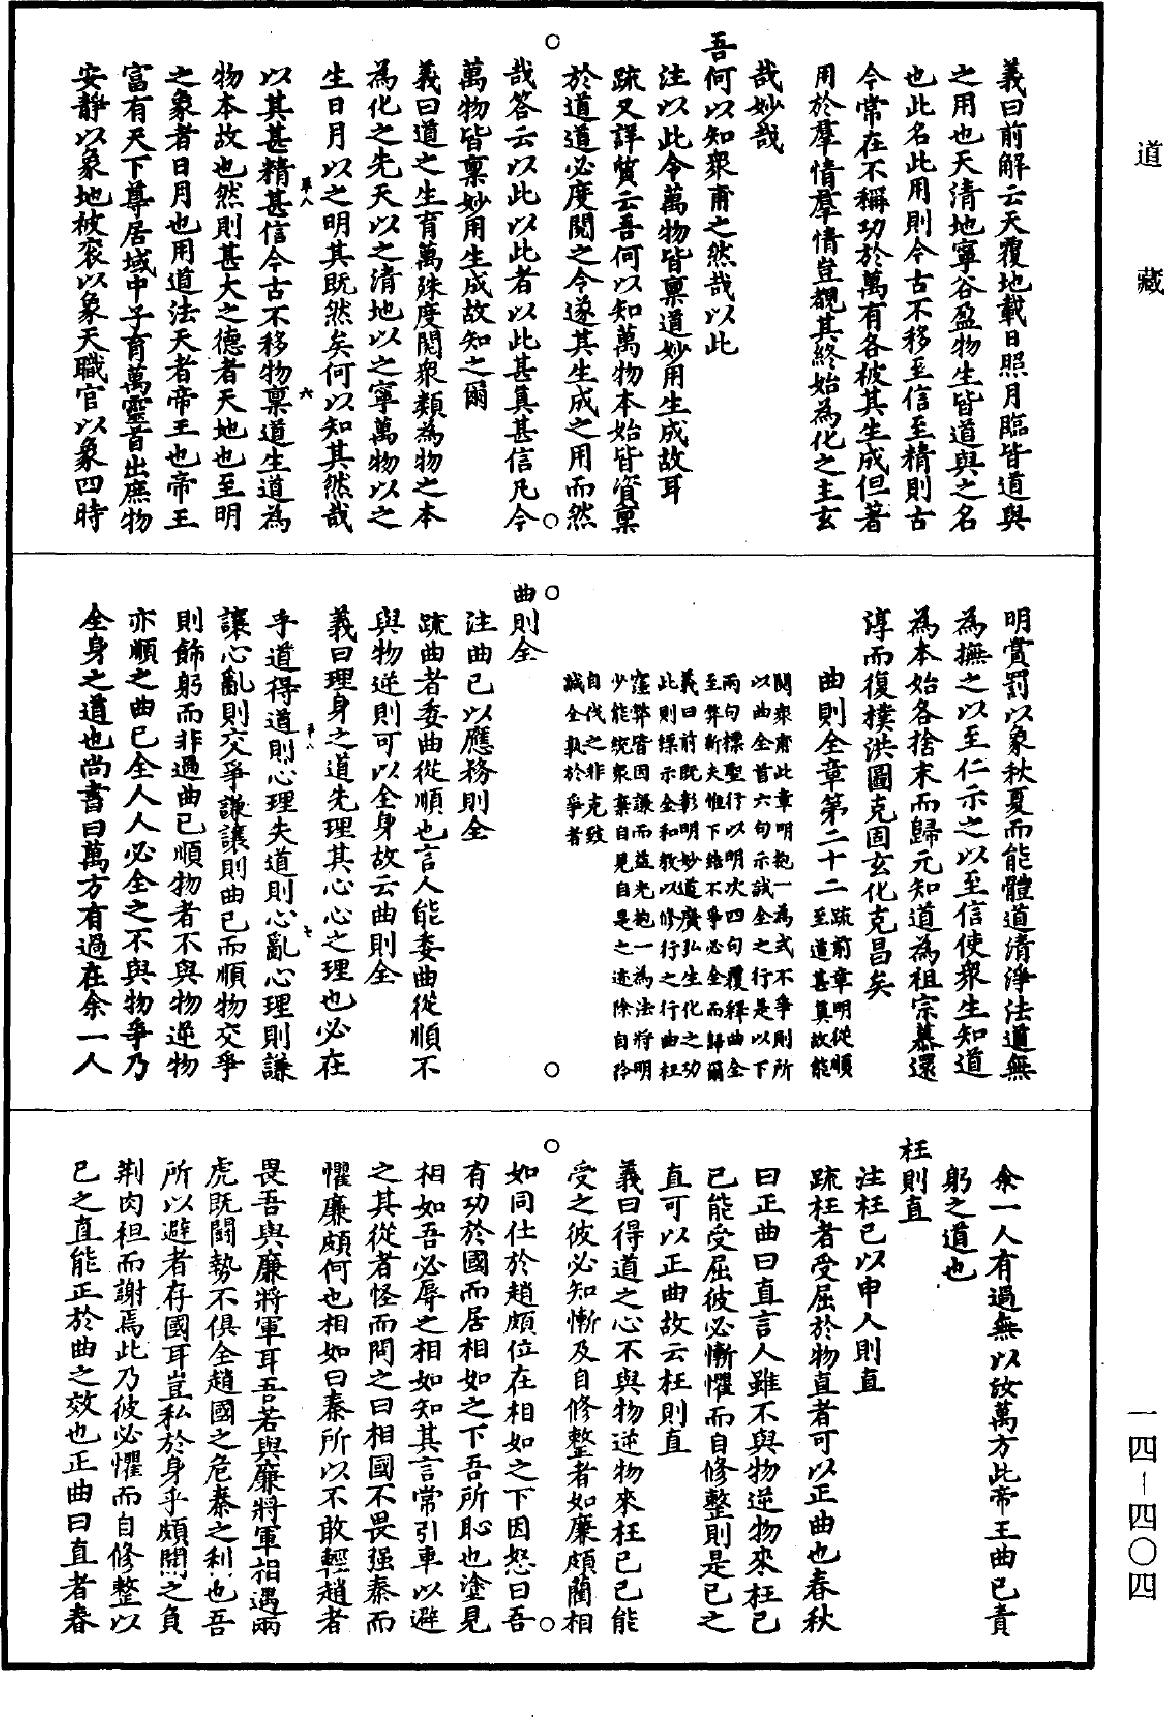 道藏
義曰前解云天覆地載日照月臨皆道與
之用也天清地寧谷盈物生皆道與之名
也此名此用則今古不移至信至精則古
今常在不稱功於萬有各被其生成但著
用於羣情羣情豈覩其終始為化之主玄
哉妙哉
吾何以知衆甫之然哉以此
注以此今萬物皆稟道妙用生成故耳
疏又詳質云吾何以知萬物本始皆資稟
於道道必度閱之令遂其生成之用而然
哉答云以此以此者以此甚真甚信凡今
萬物皆稟妙用生成故知之爾
義曰道之生育萬殊度閱衆類為物之本
為化之先天以之清地以之寧萬物以之
生日月以之明其既然矣何以知其然哉
以其甚精甚信今古不移物稟道生道為
物本故也然則甚大之德者天地也至明
之象者日月也用道法天者帝王也帝王
富有天下尊居域中子育萬靈首出庶物
安靜以象地被衮以象天職官以象四時
明賞罰以象秋夏而能體道清淨法道無
為撫之以至仁示之以至信使衆生知道
為本始各捨末而歸元知道為祖宗慕還
淳而復樸洪圖克固玄化克昌矣
曲則全章第二十二
疏前章明從順
至道甚真故能
閱衆甫此章明抱一為式不爭則所
以曲全首六句示誡全之行是以下
兩句標聖行以明次四句覆釋曲全
至弊新夫惟下結不爭必全而歸爾
義曰前既彰明妙道廣弘生化之功
此則標示全和教以修行之行曲枉
窪弊皆因謙而益光抱一為法將明
少能統衆棄自見自是之迹除自矜
自伐之非克致
誠全孰於爭者
曲則全
注曲己以應務則全
疏曲者委曲從順也言人能委曲從順不
與物逆則可以全身故云曲則全
義曰理身之道先理其心心之理也必在
乎道得道則心理失道則心亂心理則謙
讓心亂則交爭謙讓則曲己而順物交爭
則飾躬而非過曲己順物者不與物逆物
亦順之曲己全人人必全之不與物爭乃
全身之道也尚書曰萬方有過在余一人
余一人有過無以故萬方此帝王曲己責
躬之道也
枉則直
注枉己以申人則直
疏枉者受屈於物直者可以正曲也春秋
曰正曲曰直言人雖不與物逆物來枉己
己能受屈彼必慚懼而自修整則是己之
直可以正曲故云枉則直
義曰得道之心不與物逆物來枉己己能
受之彼必知慚及自修整者如廉頗藺相
如同仕於趙頗位在相如之下因怒曰吾
有功於國而居相如之下吾所恥也塗見
相如吾必辱之相如知其言常引車以避
之其從者怪而問之曰相國不畏强秦而
懼廉頗何也相如曰秦所以不敢輕趙者
畏吾與廉將軍耳吾若與廉將軍相遇兩
虎既鬪勢不俱全趙國之危秦之利也吾
所以避者存國耳豈私於身乎頗聞之負
荆肉袒而謝焉此乃彼必懼而自修整以
己之直能正於曲之效也正曲曰直者春
一四－四〇四